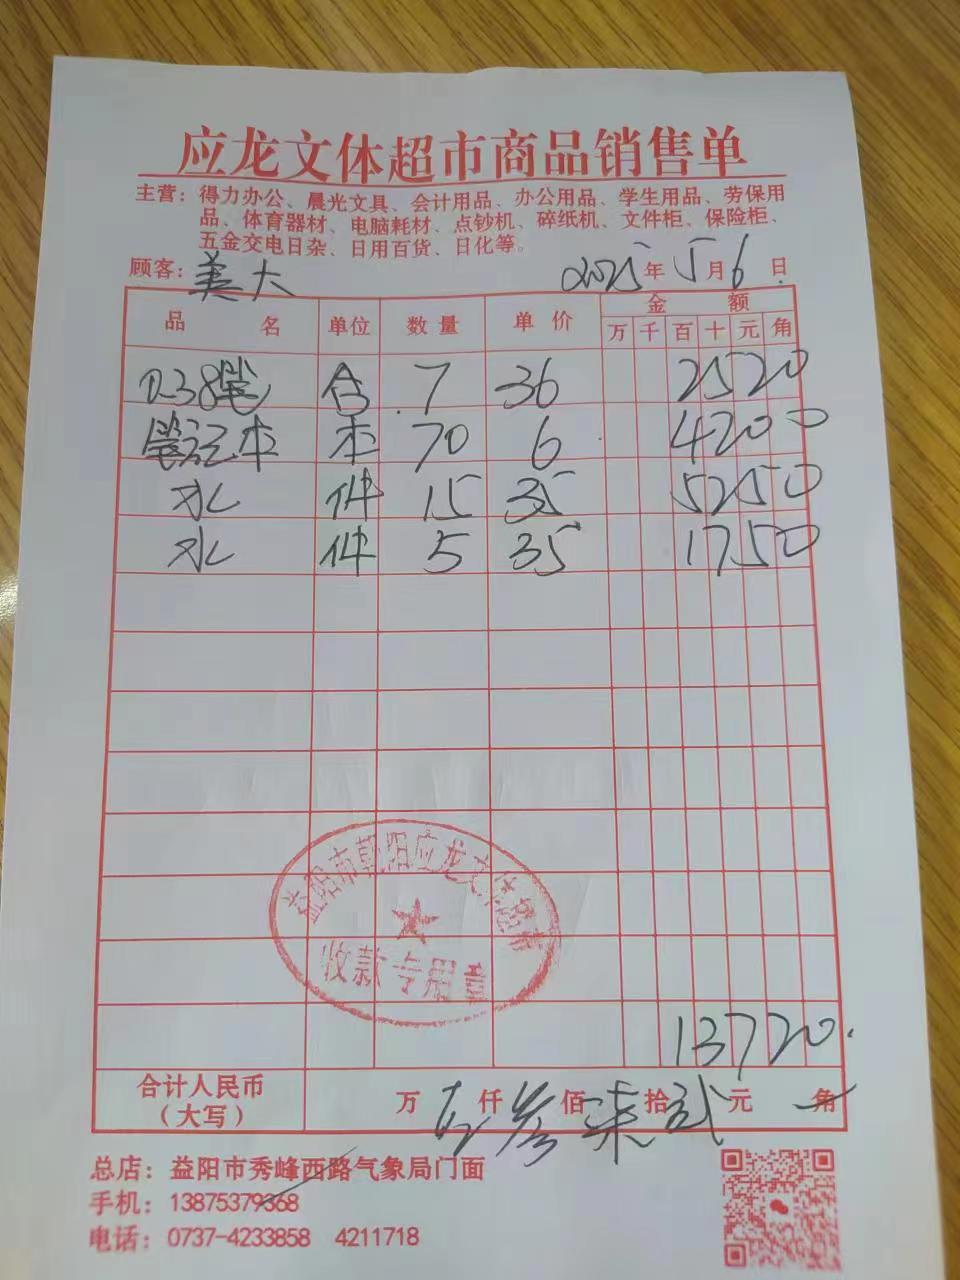 应龙文体超市商品销售单
主营：得力办公、晨光文具、会计用品、办公用品、学生用品、劳保用
品、体育器材、电脑耗材、点钞机、碎纸机、文件柜、保险柜、
五金交电日杂、日用百货、日化等。
顾客：美大 2025年5月6日
品名 单位 数量 单价 金额
万 千 百 十 元 角
0.38笔 合 7 36 2520
笔记本 本 70 6 4200
水 件 15 35 5250
水 件 5 35 1750
益阳市朝阳应龙文体超市
收款专用章
13720.
合计人民币
（大写）
万 仟 叁 佰 柒 拾 贰 元 角
总店：益阳市秀峰西路气象局门面
手机：13875379368
电话：0737-4233858 4211718